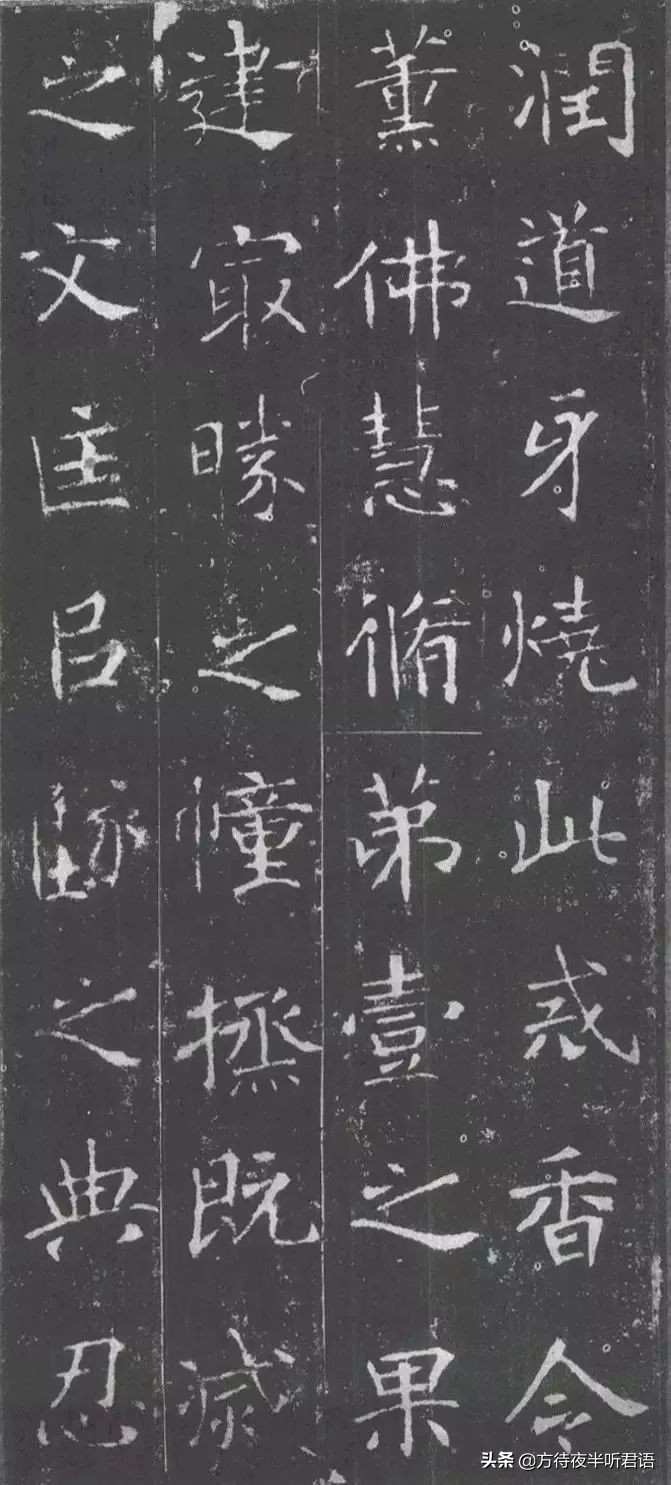 潤道牙燒此惑香令
薰佛慧脩苐壹之果
建冣勝之幢拯既滅
之文匡已墜之典忍
头条 @方待夜半听君语